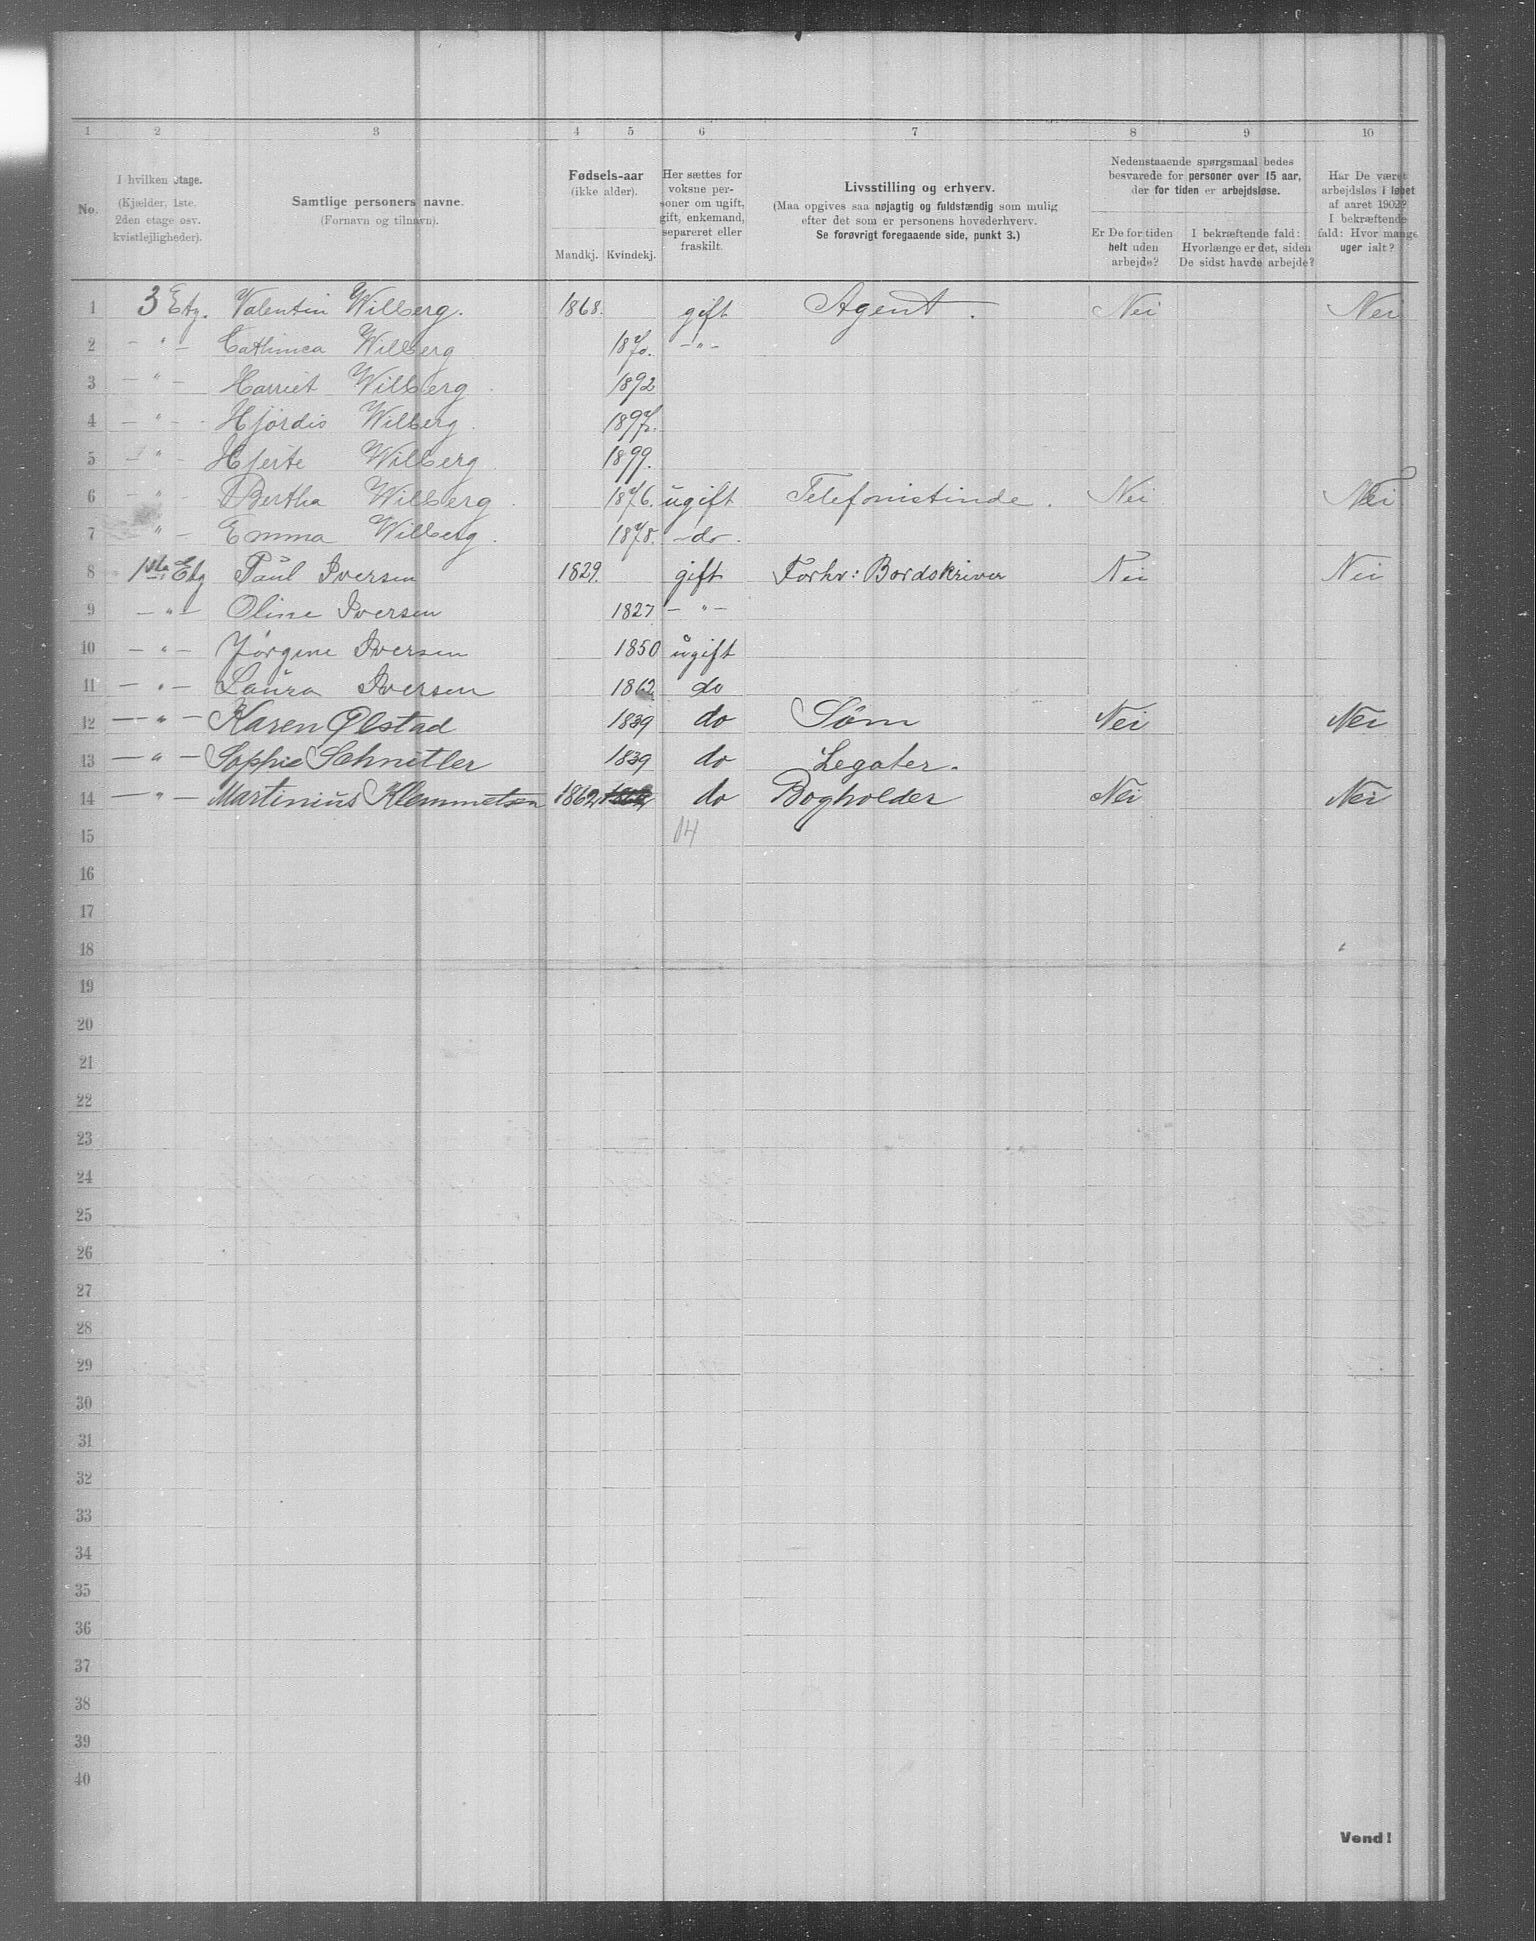 1 2 3 4 5 6 7 8 9 10
No.
I hvilken etage.
(Kjælder, 1ste.
2den etage osv.
kvistlejligheder).
Samtlige personers navne.
(Fornavn og tilnavn).
Fødsels-aar
(ikke alder).
Mandkj. Kvindekj.
Her sættes for
voksne per-
soner om ugift,
gift, enkemand,
separeret eller
fraskilt.
Livsstilling og erhverv.
(Maa opgives saa nøjagtig og fuldstændig som mulig
efter det som er personens hovederhverv.
Se forøvrigt foregaaende side, punkt 3.)
Nedenstaaende spørgsmaal bedes
besvarede for personer over 15 aar,
der for tiden er arbejdsløse.
Er De for tiden
helt uden
arbejde?
I bekræftende fald:
Hvorlænge er det, siden
De sidst havde arbejde?
Har De været
arbejdsløs i løbet
af aaret 1902?
I bekræftende
fald: Hvor mange
uger ialt?
1 3 Etg. Valentin Wilberg. 1868. gift Agent. Nei Nei
2 - " - Cathinca Wilberg 1870. - " -
3 - " - Harriet Wilberg. 1892
4 - " - Hjørdis Wilberg. 1897.
5 - " - Hjerte Wilberg 1899.
6 - " - Bertha Wilberg. 1876. ugift Telefonistinde. Nei Nei
7 " - Emma Wilberg. 1878. - do -.
8 1ste Etg Paul Iversen 1829. gift Forhv: Bordskriver Nei Nei
9 - " - Oline Iversen 1827 - " -
10 - " - Jørgine Iversen 1850 ugift
11 - " - Laura Iversen 1862 do
12 - " - Karen Ølstad 1839 do Søm Nei Nei
13 - " - Sophie Schnitler 1839 do Legater.
14 - " - Martinius Klemmetsen 1862 do Bogholder Nei Nei
15 14
16
17
18
19
20
21
22
23
24
25
26
27
28
29
30
31
32
33
34
35
36
37
38
39
40
Vend!